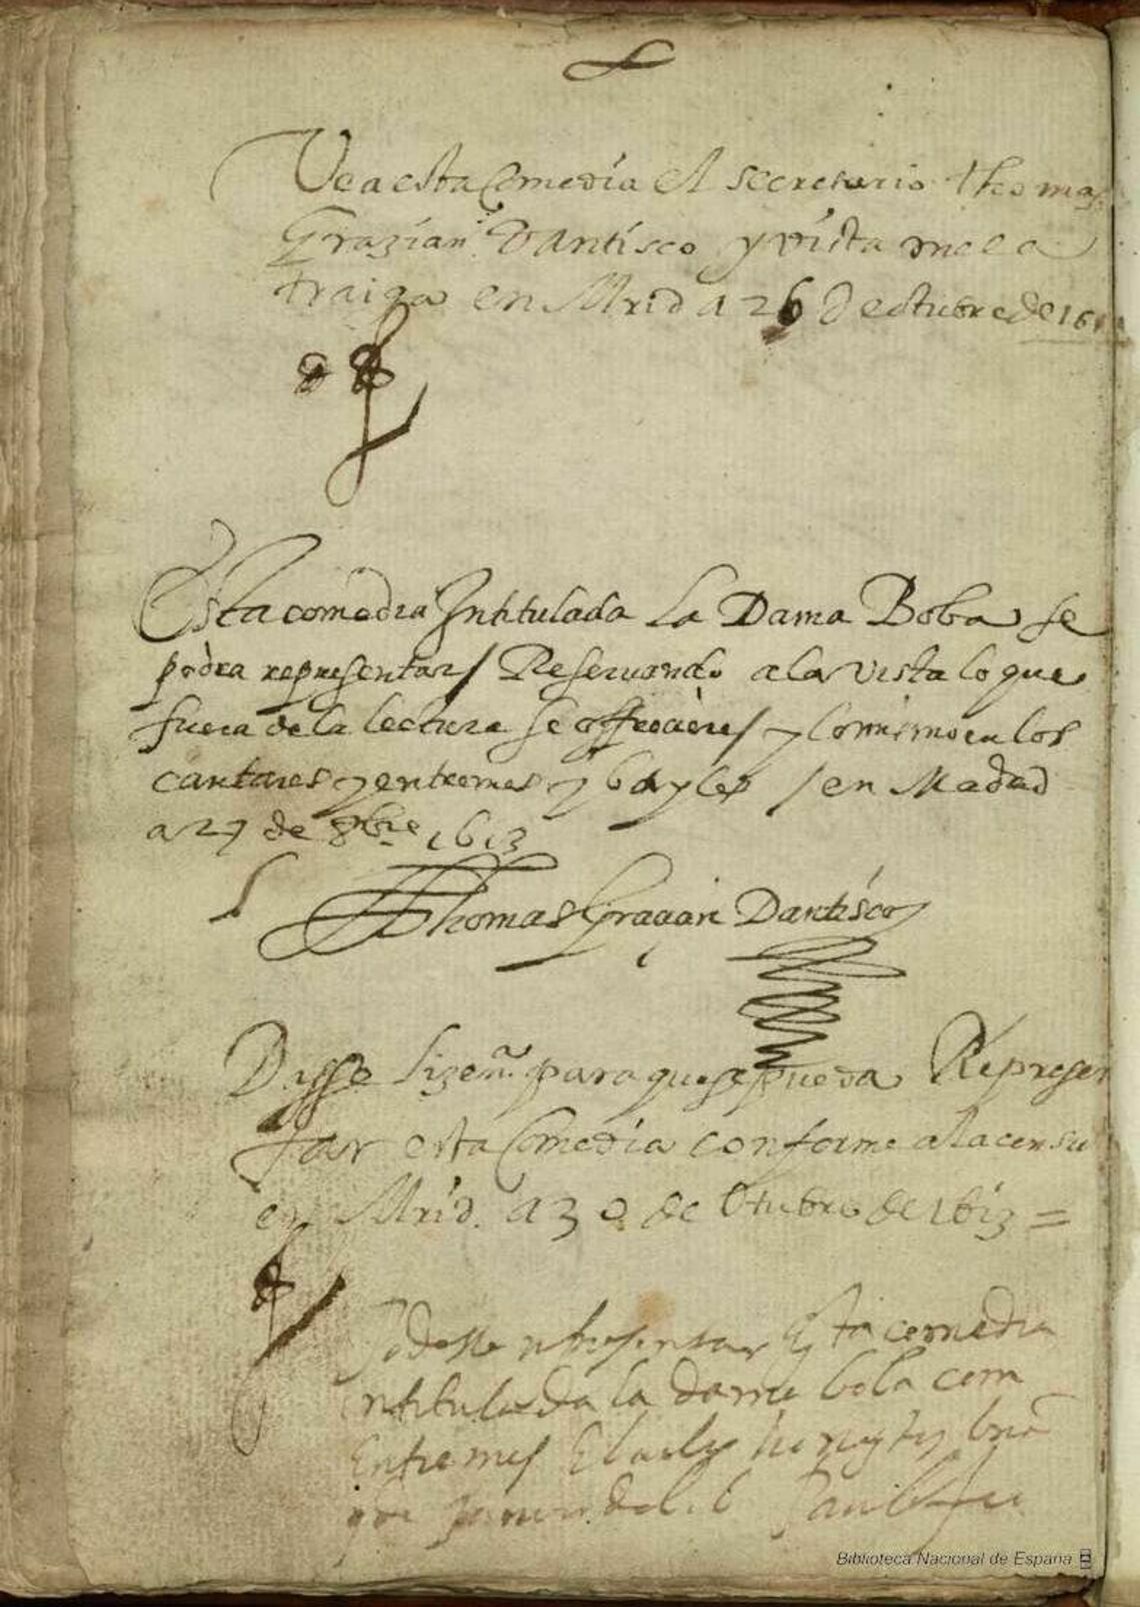 Vea esta Comedia el secretario Thomas
Grazian Dantisco y vista me la
traiga en Mrid a 26 de octubre de 161
Esta comedia Intitulada La Dama Boba se
podra representar / Reservando a la vista lo que
fuera de la lectura se offreciere / y lo mismo en los
cantares y entremes y bayles / en Madrid
a 27 de 8bre 1613
Thomas Gracian Dantisco
Desse lizen.ª para que se pueda Represen
tar esta Comedia conforme a la censu
en Mrid. a 30 de Otubre de 1613 =
Podesse representar Esta comedia
intitulada la dama boba com
Entremes
Biblioteca Nacional de España